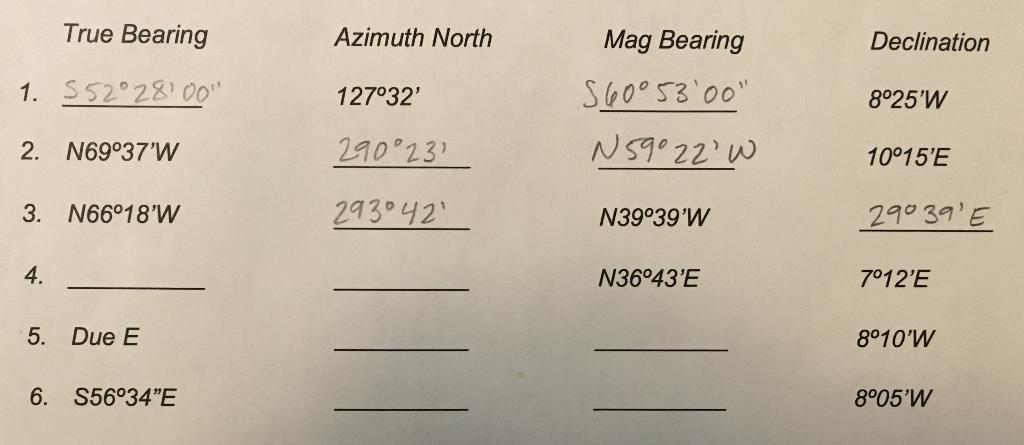 True Bearing Azimuth North Mag Bearing Declination
1. S52°28'00" 127º32' S60°53'00" 8º25'W
2. N69º37'W 290°23' N59°22'W 10º15'E
3. N66º18'W 293°42' N39º39'W 29°39'E
4. N36º43'E 7º12'E
5. Due E 8º10'W
6. S56º34"E 8º05'W